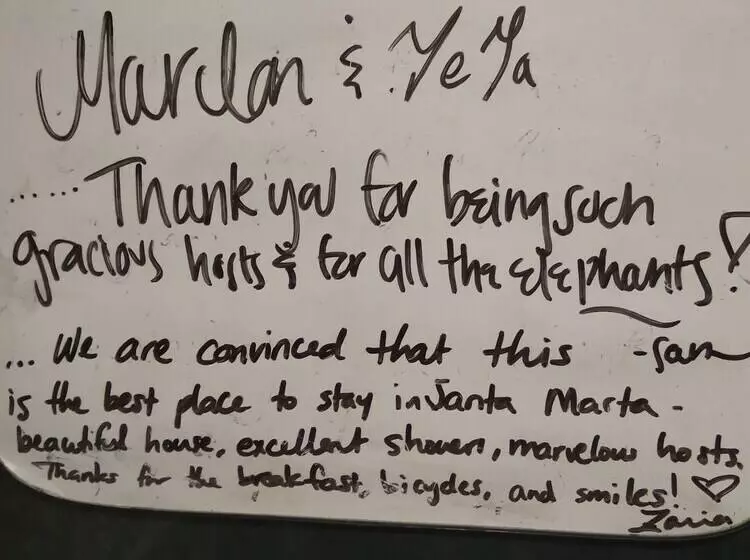 Marlon & YeYa
......Thank you for being such
gracious hosts & for all the elephants!
... We are convinced that this -Sam
is the best place to stay in Santa Marta -
beautiful house, excellent showers, marvelous hosts.
Thanks for the breakfast, bicycles, and smiles! ♡
Zaria